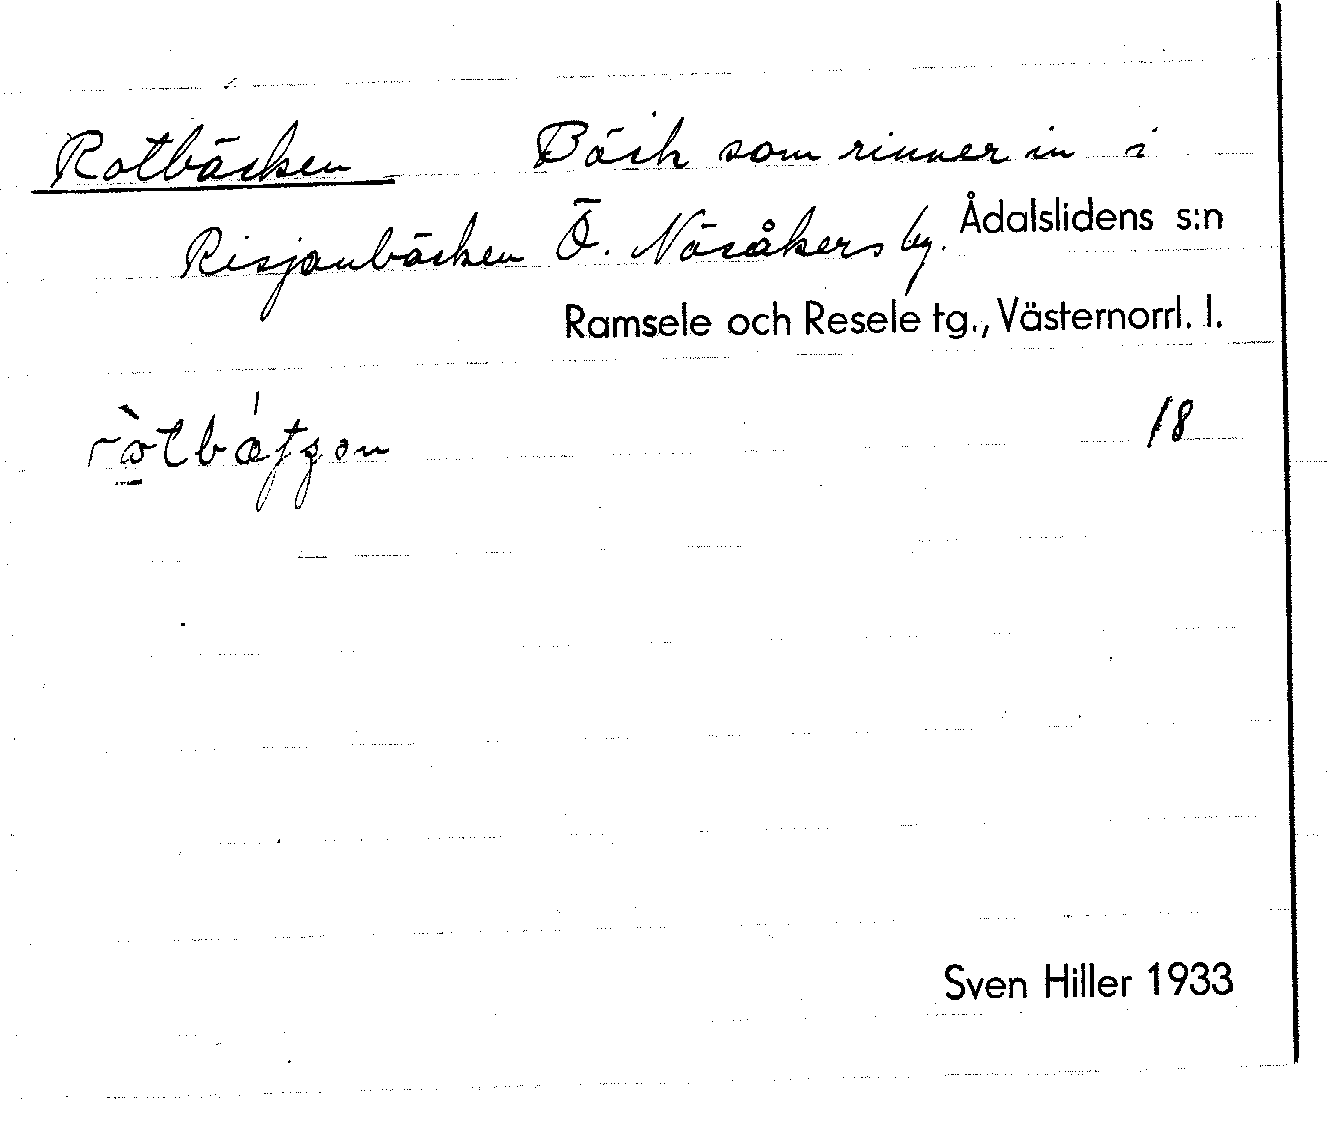 Rotbäcken Bäck som rinner in i
Risjanbäcken Ö. Näsåkers by. Ådalslidens s:n
Ramsele och Resele tg., Västernorrl. l.
18
Sven Hiller 1933